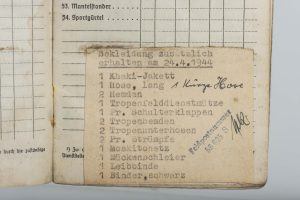 53. Mantelfonder
54. Sportgürtel
Bekleidung zusätzlich
erhalten am 24.4.1944
1 Khaki-Jakett
1 Hose, lang 1 kurze Hose
2 Hemden
1 Tropenfelddienstmütze
1 Pr. Schulterklappen
2 Tropenhemden
2 Tropenunterhosen
2 Pr. Strümpfe
1 Moskitonetz
1 Mückenschleier
1 Leibbinde
1 Binder, schwarz
Feldpostnummer
durch die zuständige
1) Zu